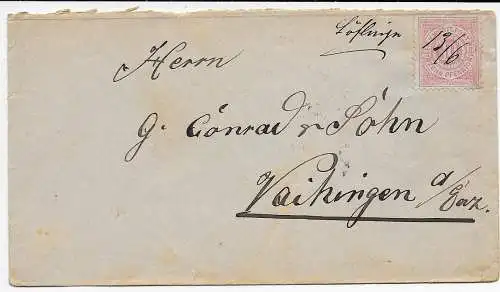 Löflingen 13/6
Herrn
G. Conrad & Sohn
Vaihingen a/Enz.